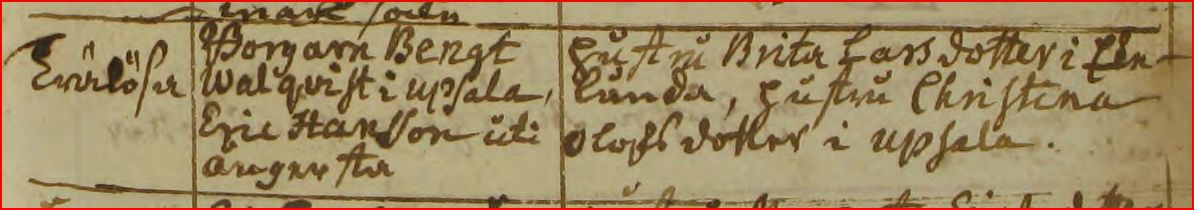 Borgarn Bengt
Walqvist i upsala,
Eric Hansson uti
ängersta
hustru Brita Larsdotter i
Lunda, hustru Christina
Olofsdotter i upsala.